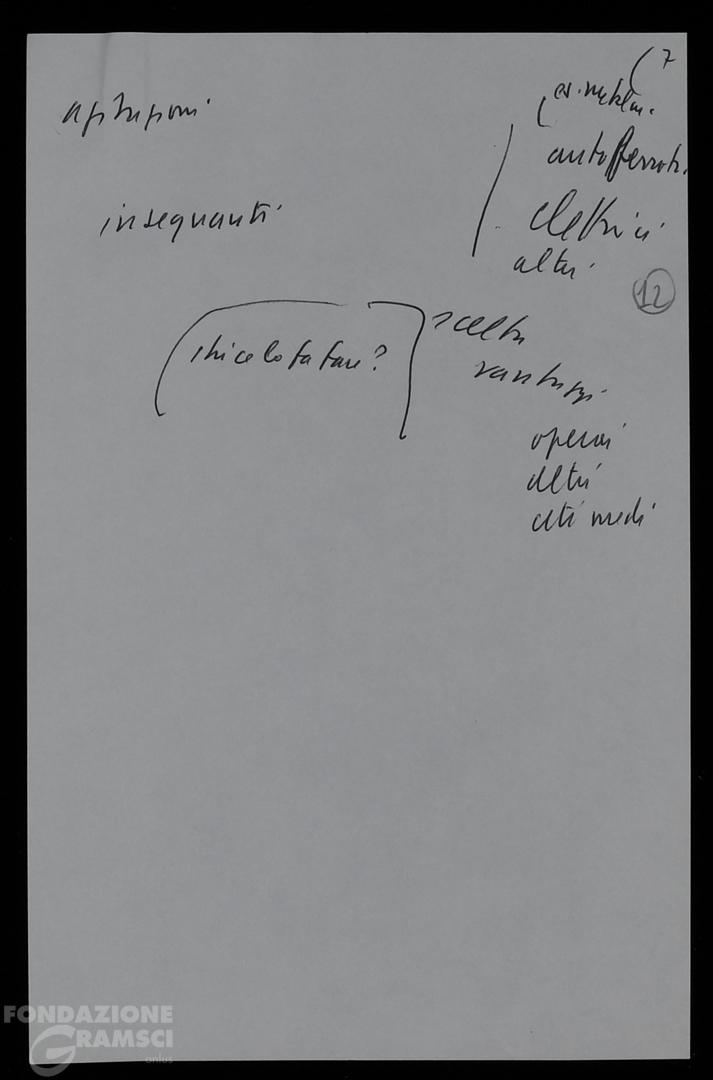 7
agitazioni
autoferrotr.
insegnanti
elettrici
altri
12
chi ce lo fa fare?
scelta
vantaggi
operai
altri
ceti medi
FONDAZIONE
GRAMSCI
onlus